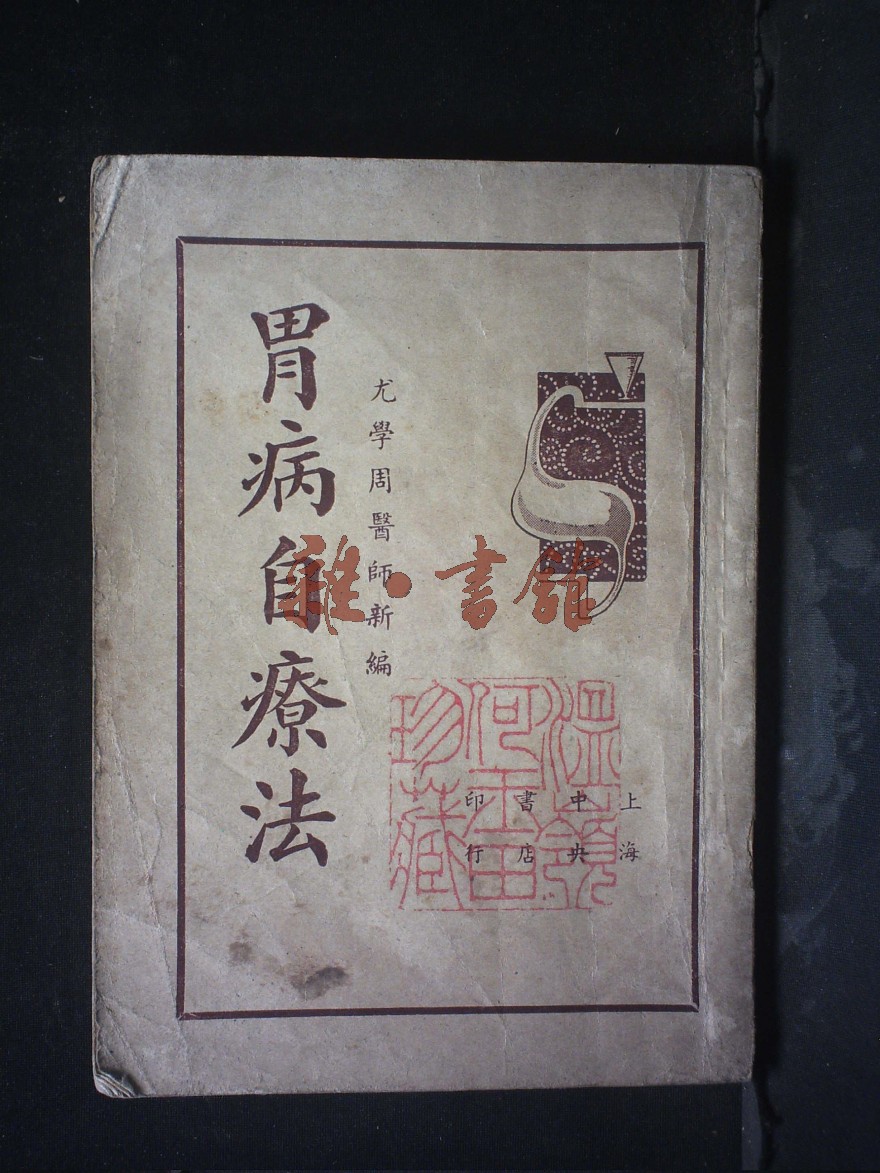 上海
中央
書店
印行
尤學周醫師新編
胃病自療法
溫嶺
何
珍藏
雜·書館